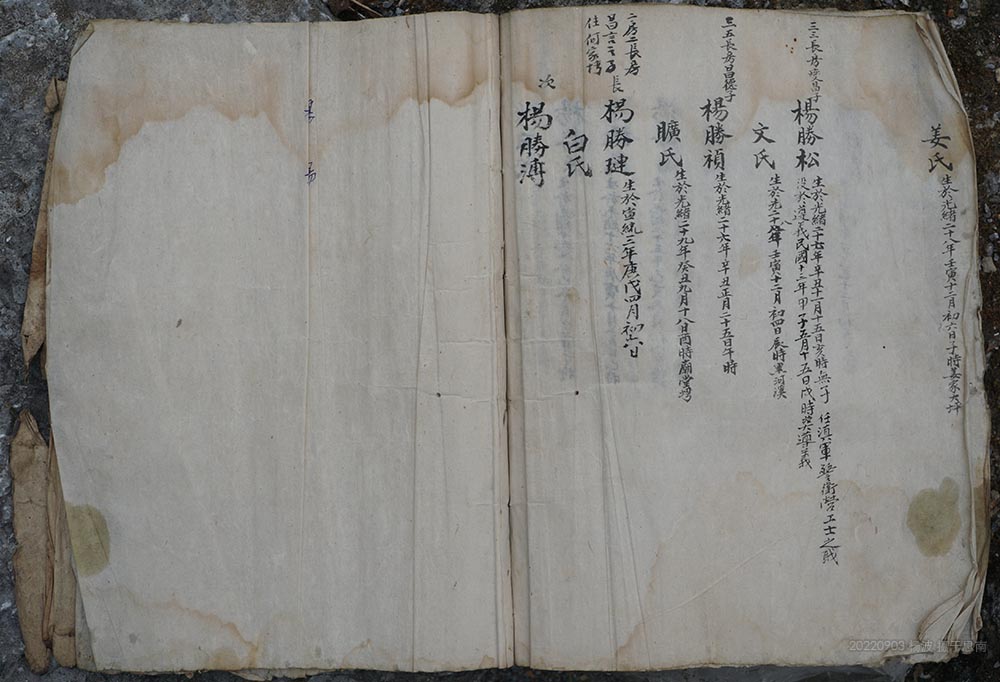 姜氏 生於光緒二十八年壬寅十二月初六日子時姜家大坪
三三長房 昌子
楊勝松 生於光緒二十七年辛丑十一月十五日亥時無子 任滇軍警衛營工士之職
没於遵義民國十三年甲子五月十五日戌時 遵義
文氏 生於光二十八年壬寅十二月初四日辰時 河溪
三五長房昌德子
楊勝禎 生於光緒二十六年辛丑正月二十五日午時
曠氏 生於光緒二十九年癸丑九月十八日酉時廟堂灣
二房二長房
昌言之子長
住何家塆
楊勝璉 生於宣統三年庚戌四月初六日
白氏
次
楊勝溥
20220903 楊波 攝于思南